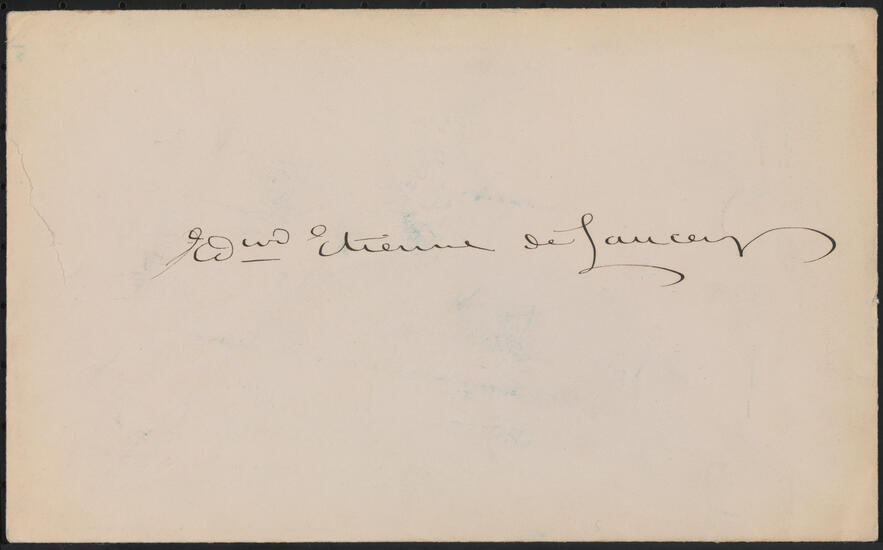 Edwd Etienne de Lancey